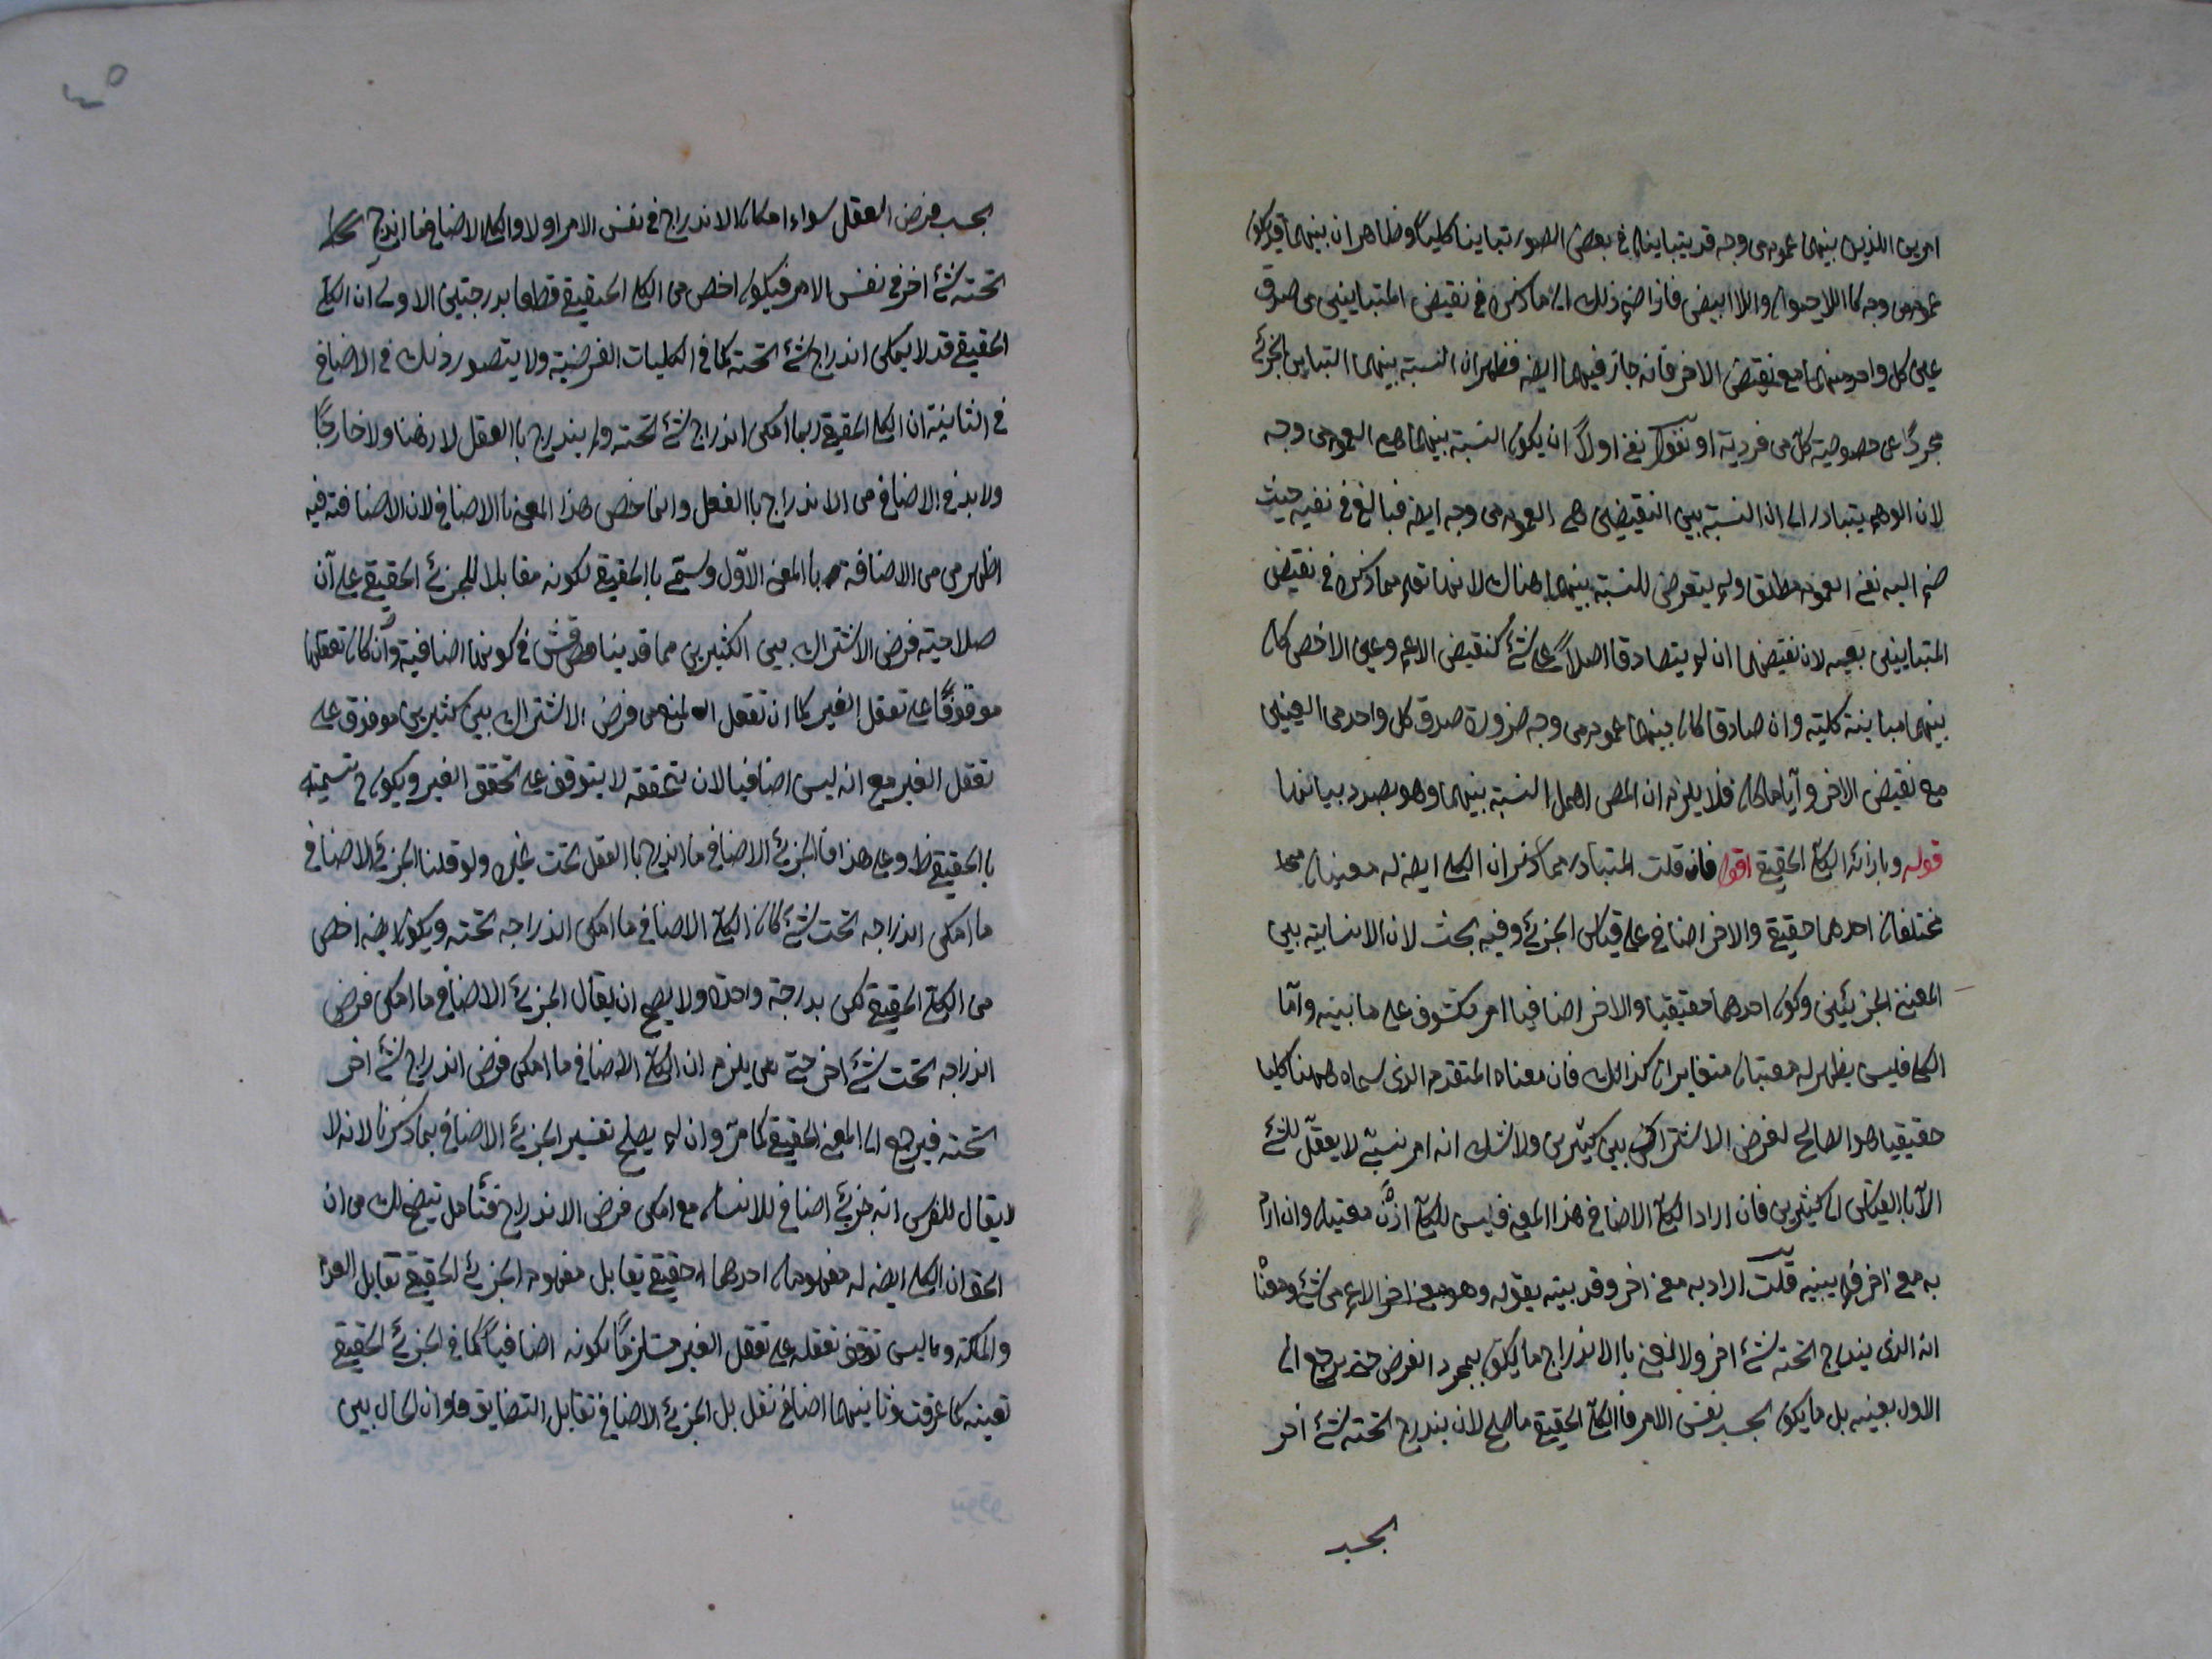 امرين اللذين بينهما عموم من وجه قد يتباينان في بعض الصور تباينا كليا وظاهر ان بينهما قد يكون
عموم من وجه كما اللاحيوان واللاابيض فاذا ضم ذلك الى ما ذكره في نقيض المتباينين من صدق
عين كل واحد منهما مع نقيض الاخر فانه جاز فيهما ايضه فظهر ان النسبة بينهما التباين الجزئي
مجردا عن خصوصية كل من فرديه او نقول نفى اولا ان يكون النسبة بينهما هي العموم من وجه
لان الوهم يتبادر الى ان النسبة بين النقيضين هي العموم من وجه ايضه فبالغ في نفيه حيث
ضم اليه نفى العموم مطلقا ولم يتعرض للنسبة بينهما هناك لانها تعلم مما ذكره في نقيض
المتباينين بعينه لان نقيضهما ان لم يتصادقا اصلا على شئ كنقيض الاعم وعين الاخص كان
بينهما مباينة كلية وان صادقا كان بينهما عموم من وجه ضرورة صدق كل واحد من العينين
مع نقيض الاخر وايا ما كان فلا يلزم ان المص اهمل النسبة بينهما وهو بصدد بيانها
قوله وبازائه الكلي الحقيقي اقول فان قلت المتبادر مما ذكر ان الكلي ايضه له معنيان
مختلفان احدهما حقيقي والاخر اضافي على قياس الجزئي وفيه بحث لان الانسابية بين
المعنيى الجزئيين وكون احدهما حقيقيا والاخر اضافيا امر مكشوف على ما بينه واما
الكلي فليس يظهر له معنيان متغايران كذالك فان معناه المتقدم الذى سماه ههنا كليا
حقيقيا هو الصالح لفرض الاشتراك بين كثيرين ولا شك انه امر نسبي لا يعقل للشئ
الا بالقياس الى كثيرين فان اراد الكلي الاضافي هذا المعنى فليس للكلي اذن معنيان وان اراد
به معنى اخر فلم يبينه قلت اراد به معنى اخر وقد بينه بقوله وهو معنى اخر الاعم من شئ ومعناه
انه الذى يندرج تحته شئ اخر ولا نعنى باالاندراج ما يكون بمجرد الفرض حتى يرجع الى
الاول بعينه بل ما يكون بحسب نفس الامر فاالكلي الحقيقي ما صلح لان يندرج تحته شئ اخر
بحسب
بحسب فرض العقل سواء امكان الاندراج في نفس الامر اولا والكلي الاضافي ما اندرج
تحته شئ اخر في نفس الامر فيكون اخص من الكلي الحقيقي قطعا بدرجتين الاولى ان الكلي
الحقيقي قد لا يمكن اندراج شئ تحته كما في الكليات الفرضية ولا يتصور ذلك في الاضافي
في الثانية ان الكلي الحقيقي ربما امكن اندراج شئ تحته ولم يندرج باالعقل لا ذهنا ولا خارجا
ولا بد في الاضافي من الاندراج باالفعل وانما خص هذا المعنى باالاضافي لان الاضافة فيه
اظهر من من الاضافة باالمعنى الاول وسمي باالحقيقي لكونه مقابلا للجزئي الحقيقي على ان
صلاحية فرض الاشتراك بين الكثيرين مما قد يناقش في كونها اضافية وان كان تعقلها
موقوفا على تعقل الغير كما ان تعقل المنع من فرض الاشتراك بين كثيرين موقوف على
تعقل الغير مع انه ليس اضافيا لان تحققه لا يتوقف على تحقق الغير ويكون ح تسميته
باالحقيقي ظ وعلى هذا فاالجزئي الاضافي ما اندرج باالفعل تحت غيره ولو قلنا الجزئي الاضافي
ما امكن اندراجه تحت شئ كان الكلي الاضافي ما امكن اندراجه تحته ويكون ايضه اخص
من الكلي الحقيقي لكن بدرجة واحدة ولا يصح ان يقال الجزئي الاضافي ما امكن فرض
اندراجه تحت شئ اخر حتى يلزم ان الكلي الاضافي ما امكن فرض اندراج شئ اخر
تحته فيرجع الى المعنى الحقيقي كما مر وان لم يصلح تفسير الجزئي الاضافي بما ذكرنا لانه لا
لا يقال للفرس انه جزئي اضافي للانسان مع امكن فرض الاندراج فتامل يتضح لك من ان
الحق ان الكلي ايضه له مفهومان احدهما حقيقي يقابل مفهوم الجزئي الحقيقي تقابل العدم
والملكة وما ليس توقف تعقله على تعقل الغير مستلزما لكونه اضافيا كما في الجزئي الحقيقي
تعينه كما عرفت وثانيهما اضافي نقل بل الجزئي الاضافي تقابل التضايف وان الحال بين